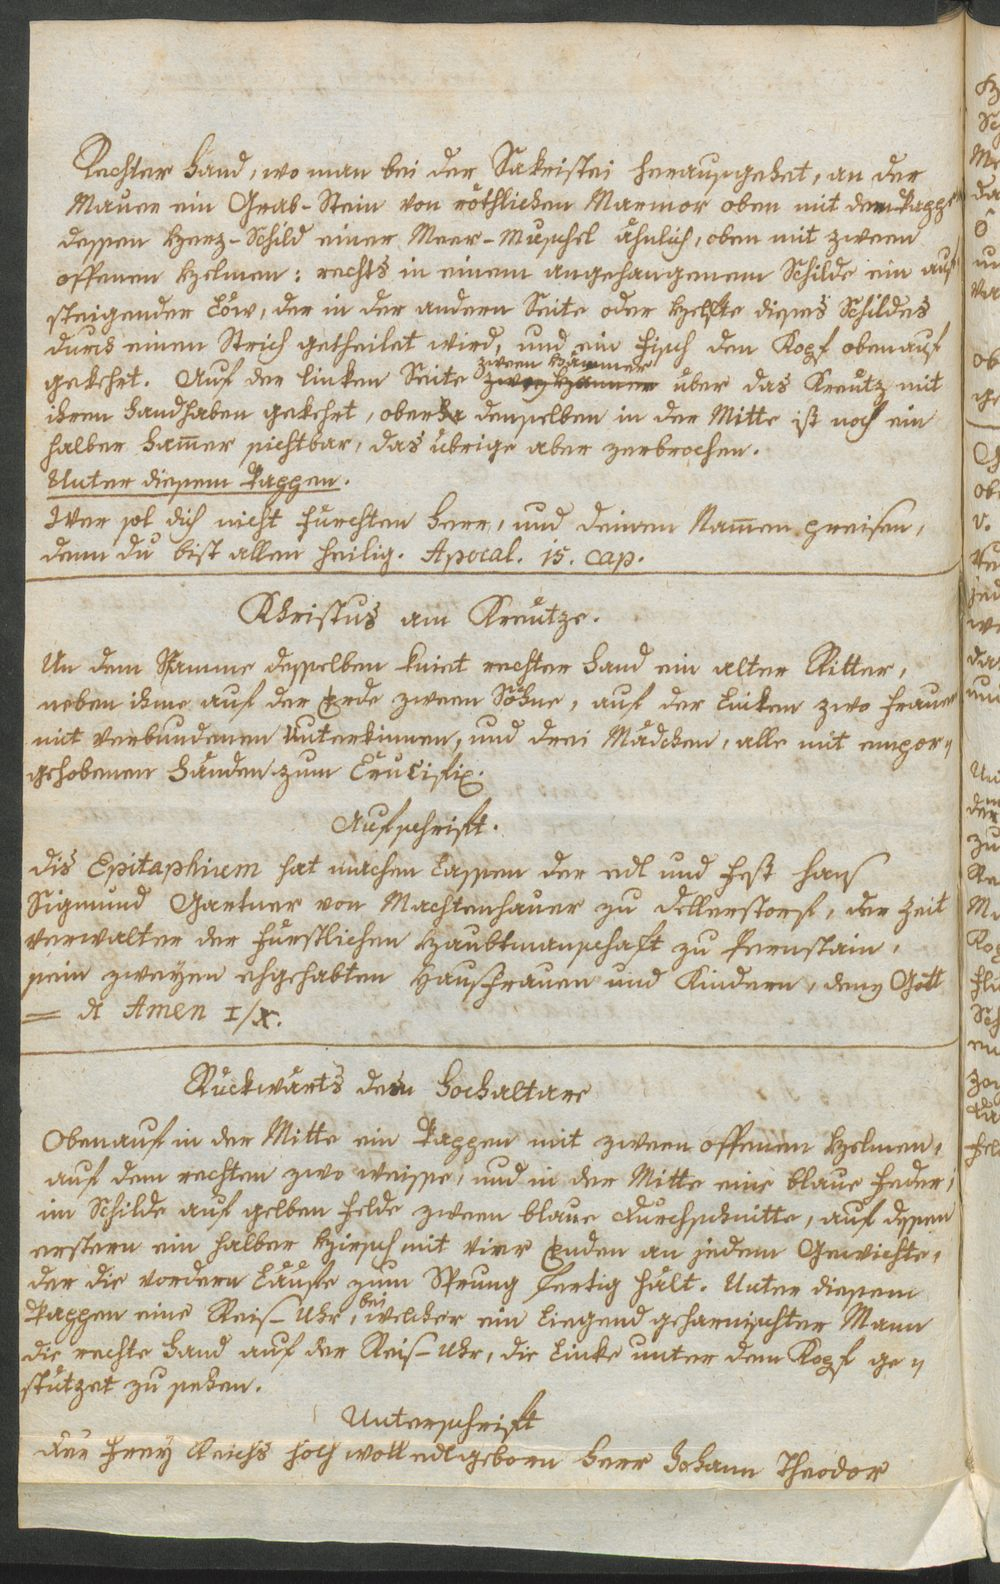 Rechter Hand, wo man bei der Sakristei herausgehet, an der
Mauer ein Grab-Stein von röthlichen Marmor oben mit dem Wappen
dessen Herz-Schild einer Meer-Muschel ähnlich, oben mit zween
offenen Helmen: rechts in einem angehangenem Schilde ein auf
steigender Löw, der in der andern Seite oder Helfte dieses Schildes
durch einen Strich getheilet wird, und ein Fisch den Kopf obenauf
zween Hämmer
gekehrt. Auf der linken Seite zwey Hämmer über das Kreütz mit
ihren Handhaben gekehrt, ober denselben in der Mitte ist noch ein
halber Ham̄er sichtbar, das übrige aber zerbrochen.
Unter diesem Wappen.
Wer sol dich nicht fürchten Herr, und deinen Nam̄en preisen,
denn du bist allen heilig. Apocal. 15. cap.
Khristus am Kreütze.
An dem Stamme desselben kniet rechter Hand ein alter Ritter,
neben ihme auf der Erde zween Söhne, auf der Linken zwo Frauen
mit verbundenen Unterkinnen, und drei Mädchen, alle mit empor=
gehobenen Händen zum Crucifix.
Aufschrift.
Dis Epitaphium hat machen lassen der edl und fest Hans
Sigmund Gartner von Machtenhauer zu Dellerstorf, der Zeit
Verwalter der Fürstlichen Haubtmanschaft zu Pernstain,
sein zweyen ehgehabten Hausfrauen und Kindern, denz Gott
= A Amen I/X.
Rückwärts dem Hochaltare
Obenauf in der Mitte ein Wappen mit zween offenen Helmen,
auf dem rechten zwo weisse, und in der Mitte eine blaue Feder,
im Schilde auf gelben Felde zween blaue Durchschnitte, auf dessen
erstern ein halber Hirsch mit vier Enden an jedem Gewichte,
der die vordern Läufte zum Sprung fertig hält. Unter diesem
bei
Wappen eine Reis-Uhr, welcher ein liegend geharnischter Mann
die rechte Hand auf der Reis-Uhr, die Linke unter dem Kopf ge=
stützet zu sehen.
Unterschrift
Der Frey Reichs hoch woll edlgeborn Herr Johann Theodor